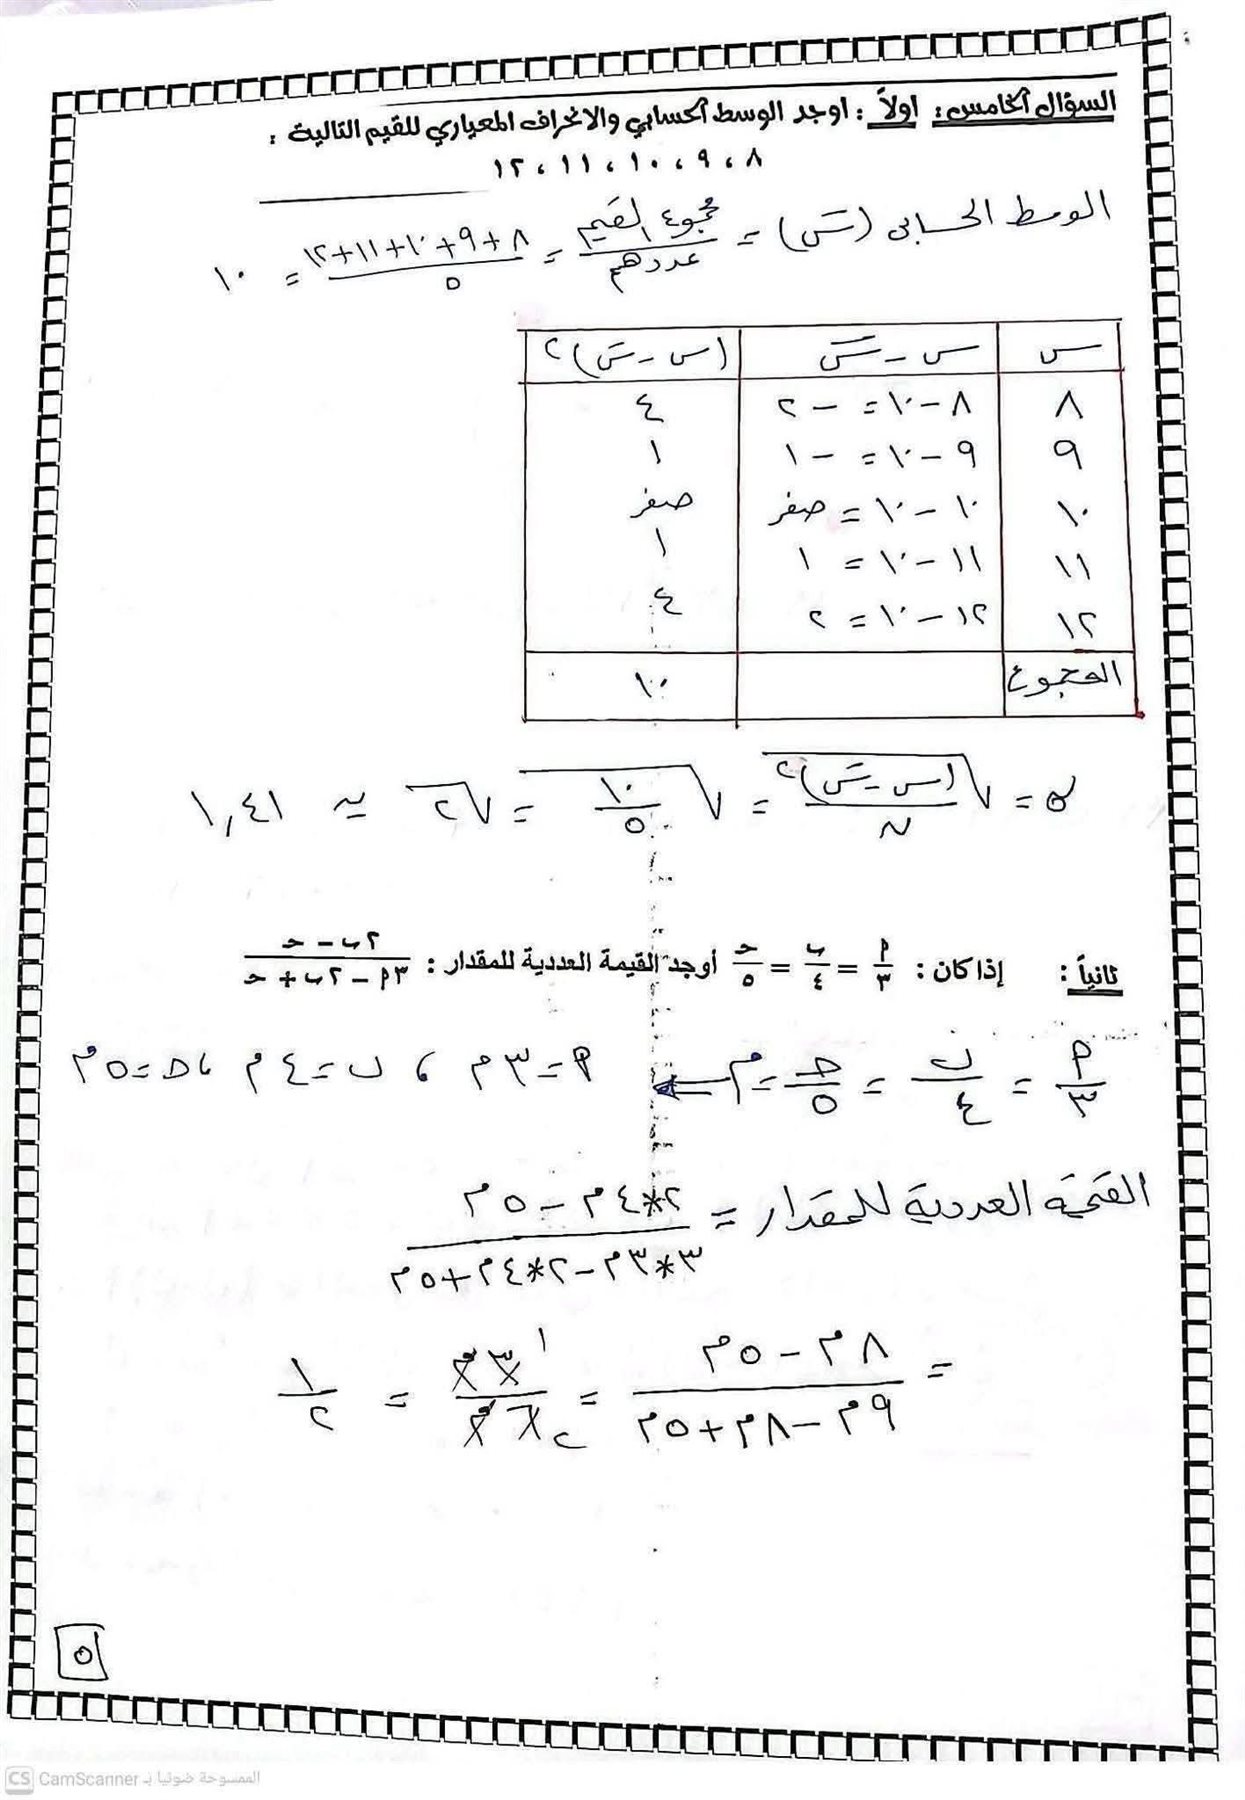 السؤال الخامس: اولاً: اوجد الوسط الحسابي والانحراف المعياري للقيم التالية :
٨ ، ٩ ، ١٠ ، ١١ ، ١٢
الوسط الحسابي (سَ) = مجموع القيم / عددهم = ٨+٩+١٠+١١+١٢ / ٥ = ١٠
س | س - سَ | (س - سَ)٢
٨ | ٨ - ١٠ = - ٢ | ٤
٩ | ٩ - ١٠ = - ١ | ١
١٠ | ١٠ - ١٠ = صفر | صفر
١١ | ١١ - ١٠ = ١ | ١
١٢ | ١٢ - ١٠ = ٢ | ٤
المجموع | | ١٠
σ = √((س - سَ)٢ / ن) = √(١٠ / ٥) = √٢ ≈ ١,٤١
ثانياً : إذا كان : م / ٣ = ب / ٤ = حـ / ٥ أوجد القيمة العددية للمقدار : ٢ب - حـ / ٣م - ٢ب + حـ
م / ٣ = ب / ٤ = حـ / ٥ = م ← م = ٣م ، ب = ٤م ، حـ = ٥م
القيمة العددية للمقدار = ٢*٤م - ٥م / ٣*٣م - ٢*٤م + ٥م
= ٨م - ٥م / ٩م - ٨م + ٥م = ٣م ١ / ٦م ٢ = ١ / ٢
٥
CS CamScanner الممسوحة ضوئيا بـ